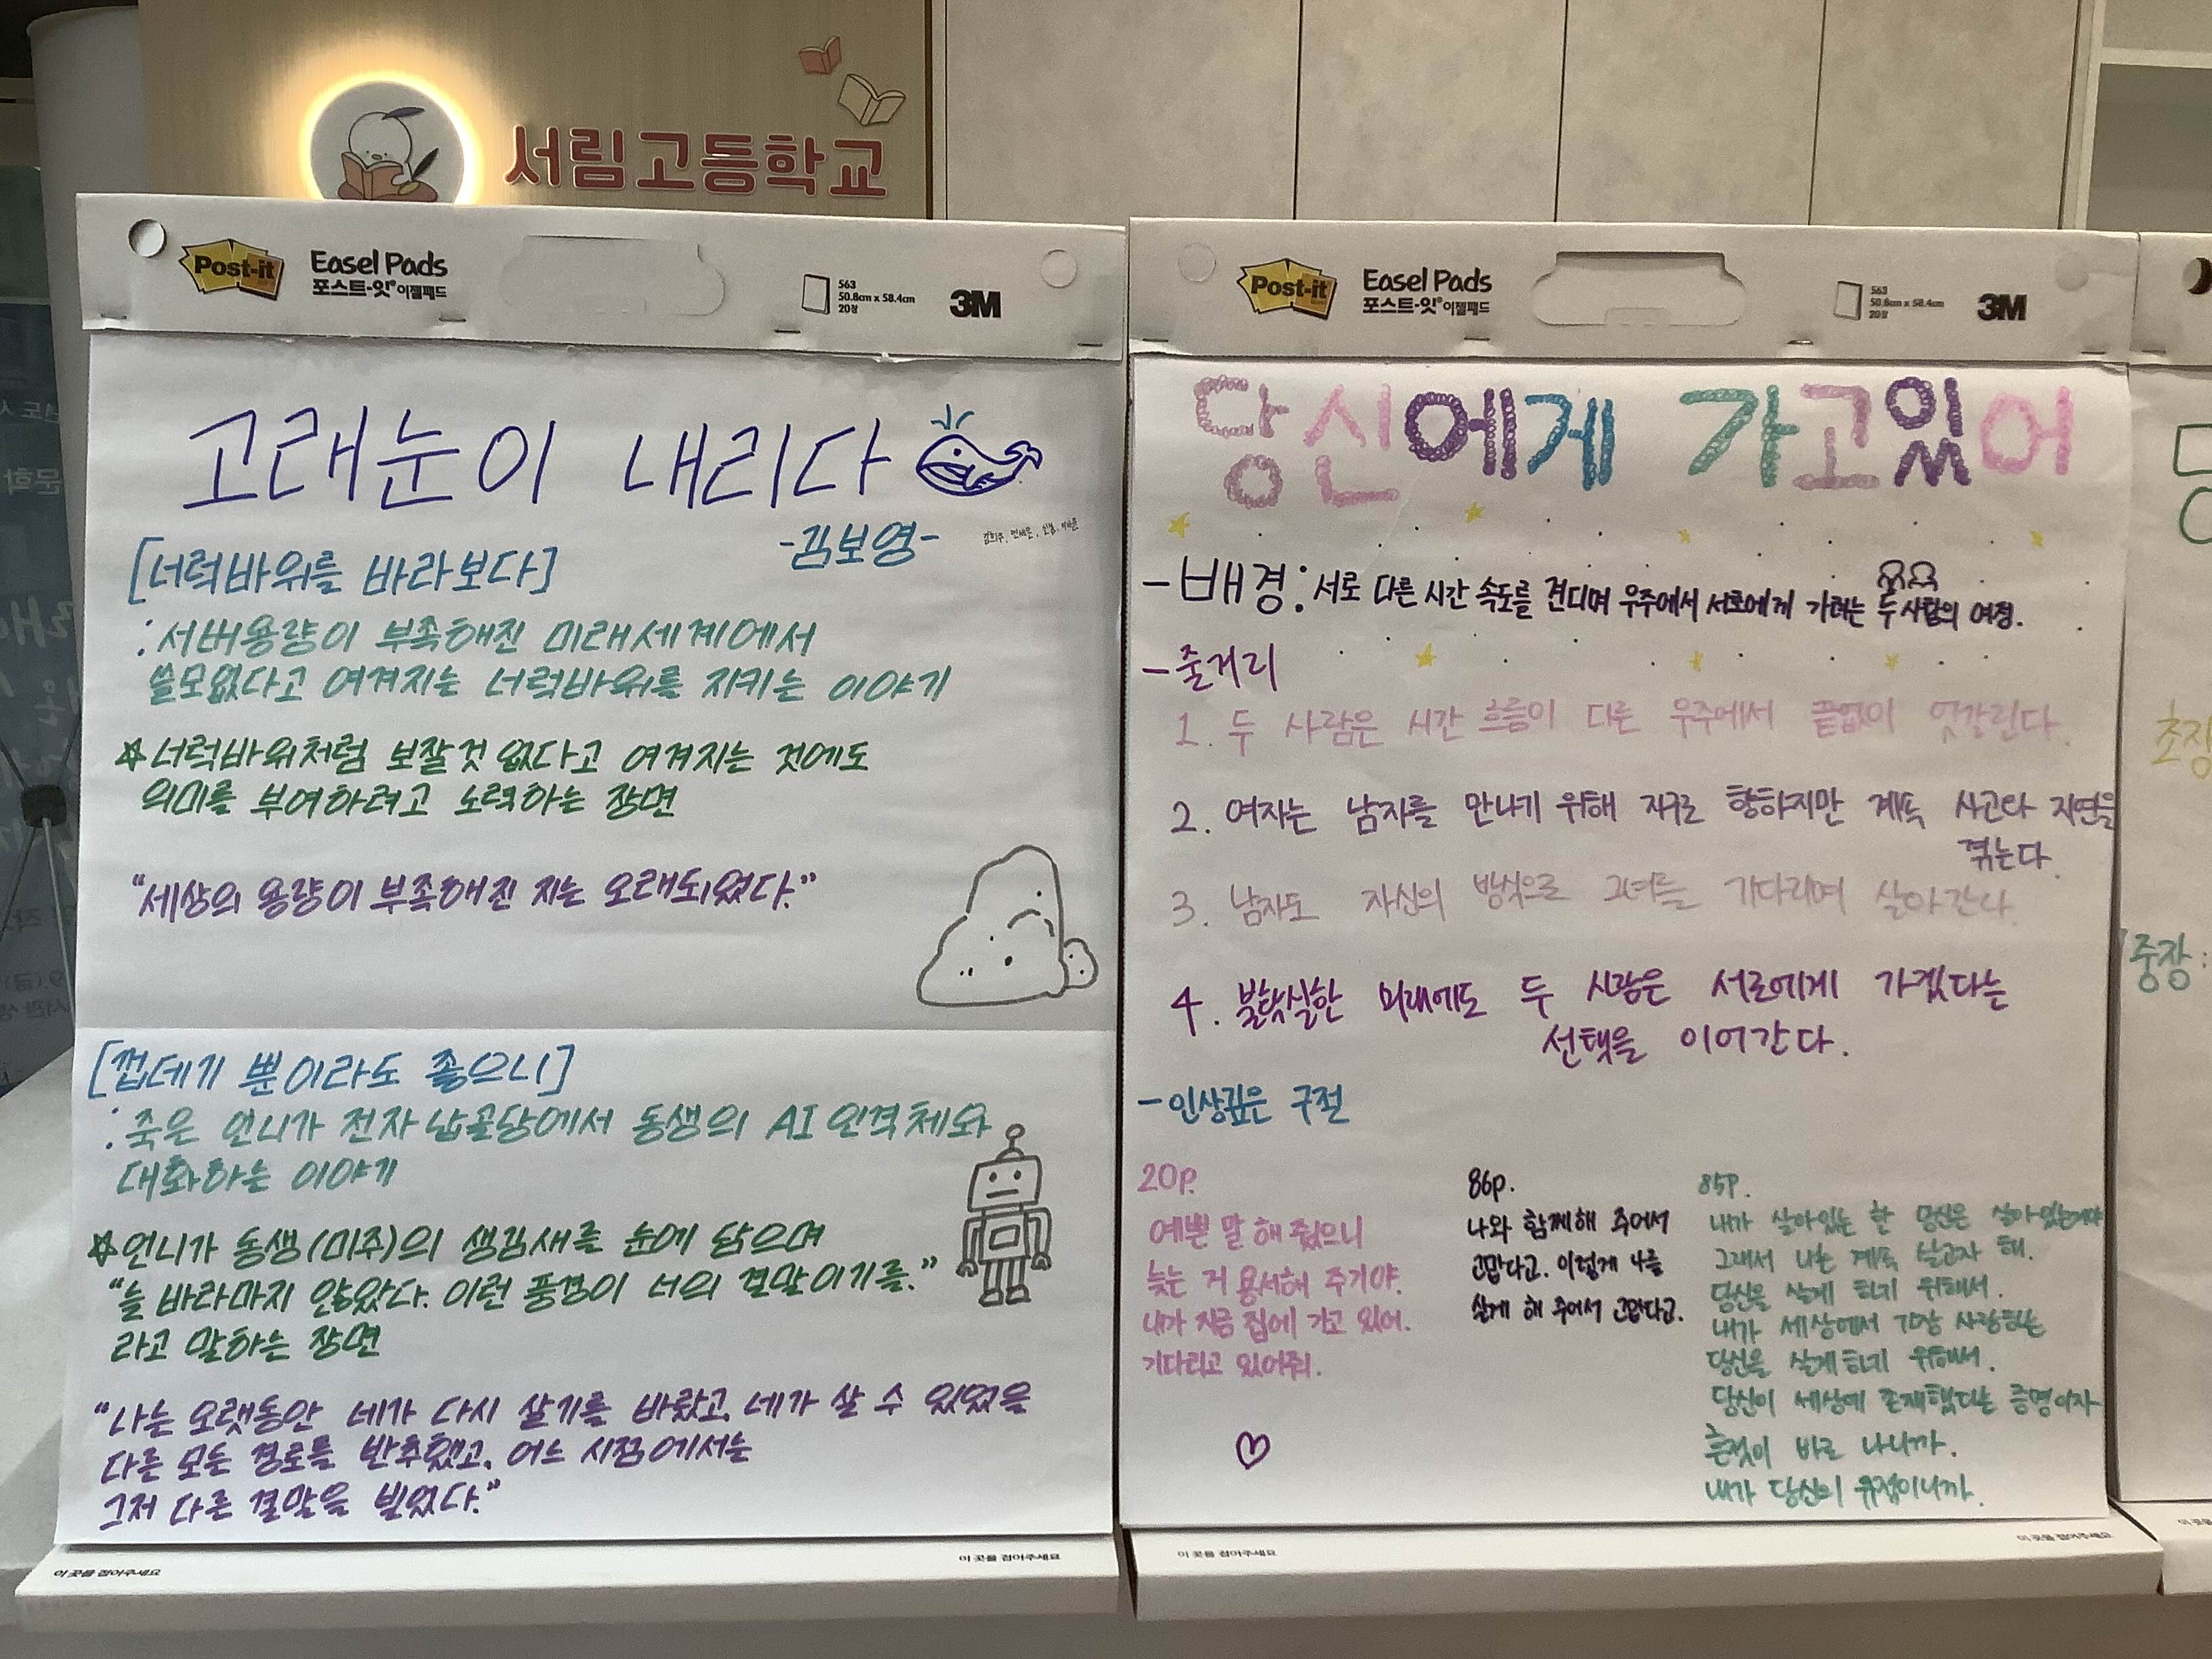 서림고등학교
Post-it
Easel Pads
포스트-잇 이젤패드
563
50.8cm x 58.4cm
20장
3M
고래눈이 내리다
-김보영-
[너럭바위를 바라보다]
: 서버용량이 부족해진 미래세계에서
쓸모없다고 여겨지는 너럭바위를 지키는 이야기
☆너럭바위처럼 보잘것 없다고 여겨지는 것에도
의미를 부여하려고 노력하는 장면
"세상의 용량이 부족해진 지는 오래되었다."
[껍데기 뿐이라도 좋으니]
: 죽은 언니가 전자 납골당에서 동생의 AI 인격체와
대화하는 이야기
☆언니가 동생(미주)의 생김새를 눈에 담으며
"늘 바라마지 않았다. 이런 풍경이 너의 결말이기를."
라고 말하는 장면
"나는 오랫동안 네가 다시 살기를 바랐고, 네가 살 수 있었을
다른 모든 경로를 반추했고, 어느 시점에서는
그저 다른 결말을 빌었다."
이 곳을 접어주세요
이 곳을 접어주세요
Post-it
Easel Pads
포스트-잇 이젤패드
563
50.8cm x 58.4cm
20장
3M
당신에게 가고있어
-배경: 서로 다른 시간 속도를 견디며 우주에서 서로에게 가려는 두 사람의 여정.
-줄거리
1. 두 사람은 시간 흐름이 다른 우주에서 끝없이 엇갈린다.
2. 여자는 남자를 만나기 위해 지구로 향하지만 계속 사고와 지연을
겪는다.
3. 남자도 자신의 방식으로 그녀를 기다리며 살아간다.
4. 불확실한 미래에도 두 사람은 서로에게 가겠다는
선택을 이어간다.
-인상깊은 구절
20p.
예쁜 말 해 줬으니
늦는 거 용서해 주기야.
내가 지금 집에 가고 있어.
기다리고 있어줘.
86p.
나와 함께해 주어서
고맙다고. 이렇게 나를
살게 해 주어서 고맙다고.
85p.
내가 살아있는 한 당신은 살아있는거야
그래서 나는 계속 살고자 해.
당신을 살게 하기 위해서.
내가 세상에서 가장 사랑하는
당신을 살게하기 위해서.
당신이 세상에 존재했다는 증명이자
흔적이 바로 나니까.
내가 당신의 유적이니까.
이 곳을 접어주세요
이 곳을 접어주세요
중장: